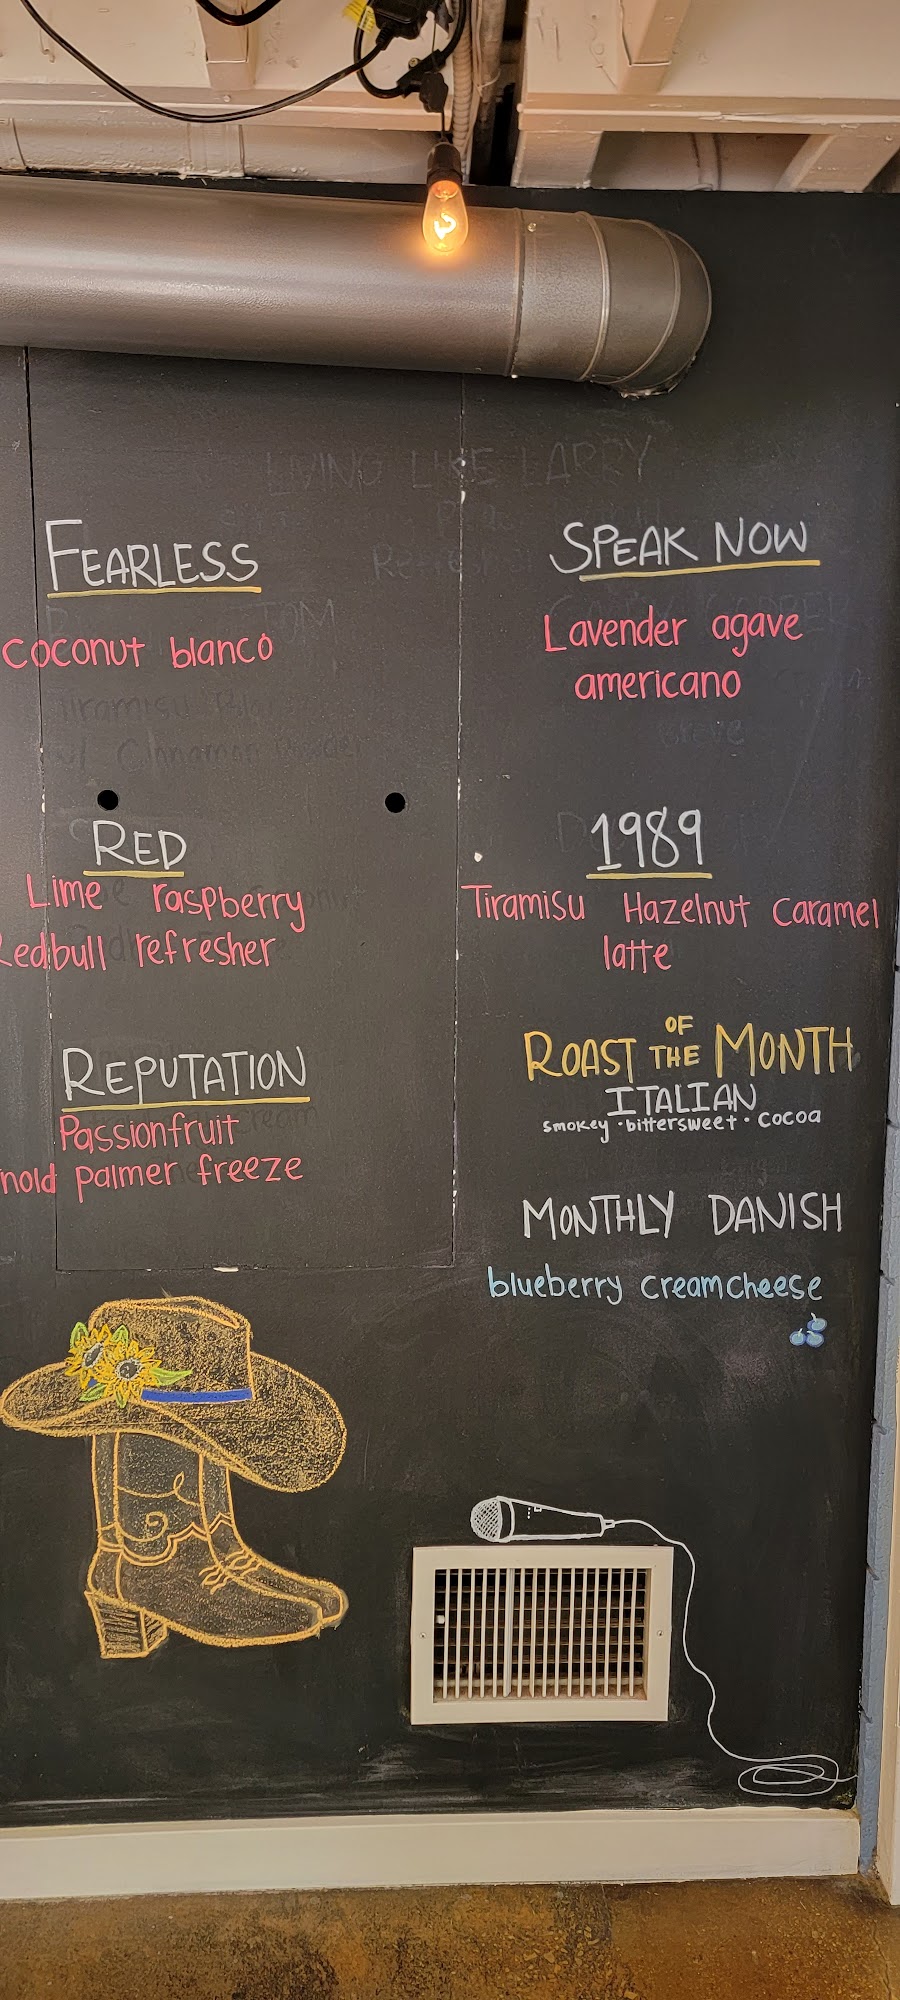 FEARLESS
coconut blanco
SPEAK NOW
Lavender agave
americano
RED
Lime raspberry
Redbull refresher
1989
Tiramisu Hazelnut caramel
latte
REPUTATION
Passionfruit
palmer freeze
ROAST OF THE MONTH
ITALIAN
smokey · bittersweet · cocoa
MONTHLY DANISH
blueberry creamcheese
LIVING LIKE LARRY